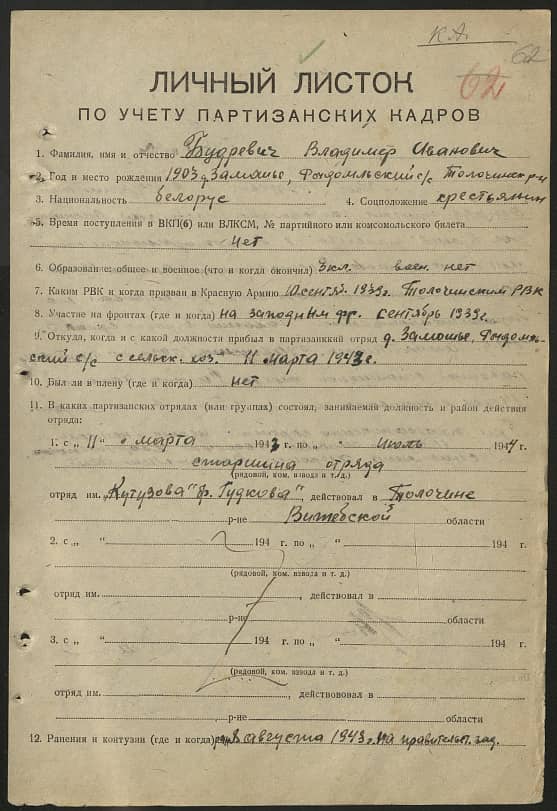 К.А.
62
62
ЛИЧНЫЙ ЛИСТОК
ПО УЧЕТУ ПАРТИЗАНСКИХ КАДРОВ
1. Фамилия, имя и отчество Будревич Владимер Иванович
2. Год и место рождения 1903 д. Замошье, Рыдомльский с/с Толочинск р-н
3. Национальность белорус 4. Соцположение крестьянин
5. Время поступления в ВКП(б) или ВЛКСМ, № партийного или комсомольского билета
Нет
6. Образование: общее и военное (что и когда окончил) 3 кл. воен. нет
7. Каким РВК и когда призван в Красную Армию 10 сентяб. 1939 г. Толочинским РВК
8. Участие на фронтах (где и когда) на западным фр. сентябрь 1939 г.
9. Откуда, когда и с какой должности прибыл в партизанский отряд д. Замошье,
ский с/с с сельск. хоз. 11 марта 1943 г.
10. Был ли в плену (где и когда) нет
11. В каких партизанских отрядах (или группах) состоял, занимаемая должность и район действия
отряда:
1. с „ 11 “ марта 1943 г. по „ “ июль 1944 г.
старшина отряда
(рядовой, ком. взвода и т. д.)
отряд им. „Кутузова“ бр. Гудкова“, действовал в Толочине
р-не Витебской области
2. с „ “ 194 г. по „ “ 194 г.
(рядовой, ком. взвода и т. д.)
отряд им. , действовал в
р-не области
3. с „ “ 194 г. по „ “ 194 г.
(рядовой, ком. взвода и т. д.)
отряд им. , действововал в
р-не области
12. Ранения и контузии (где и когда) 8 августа 1943 г. на правительст. зад.